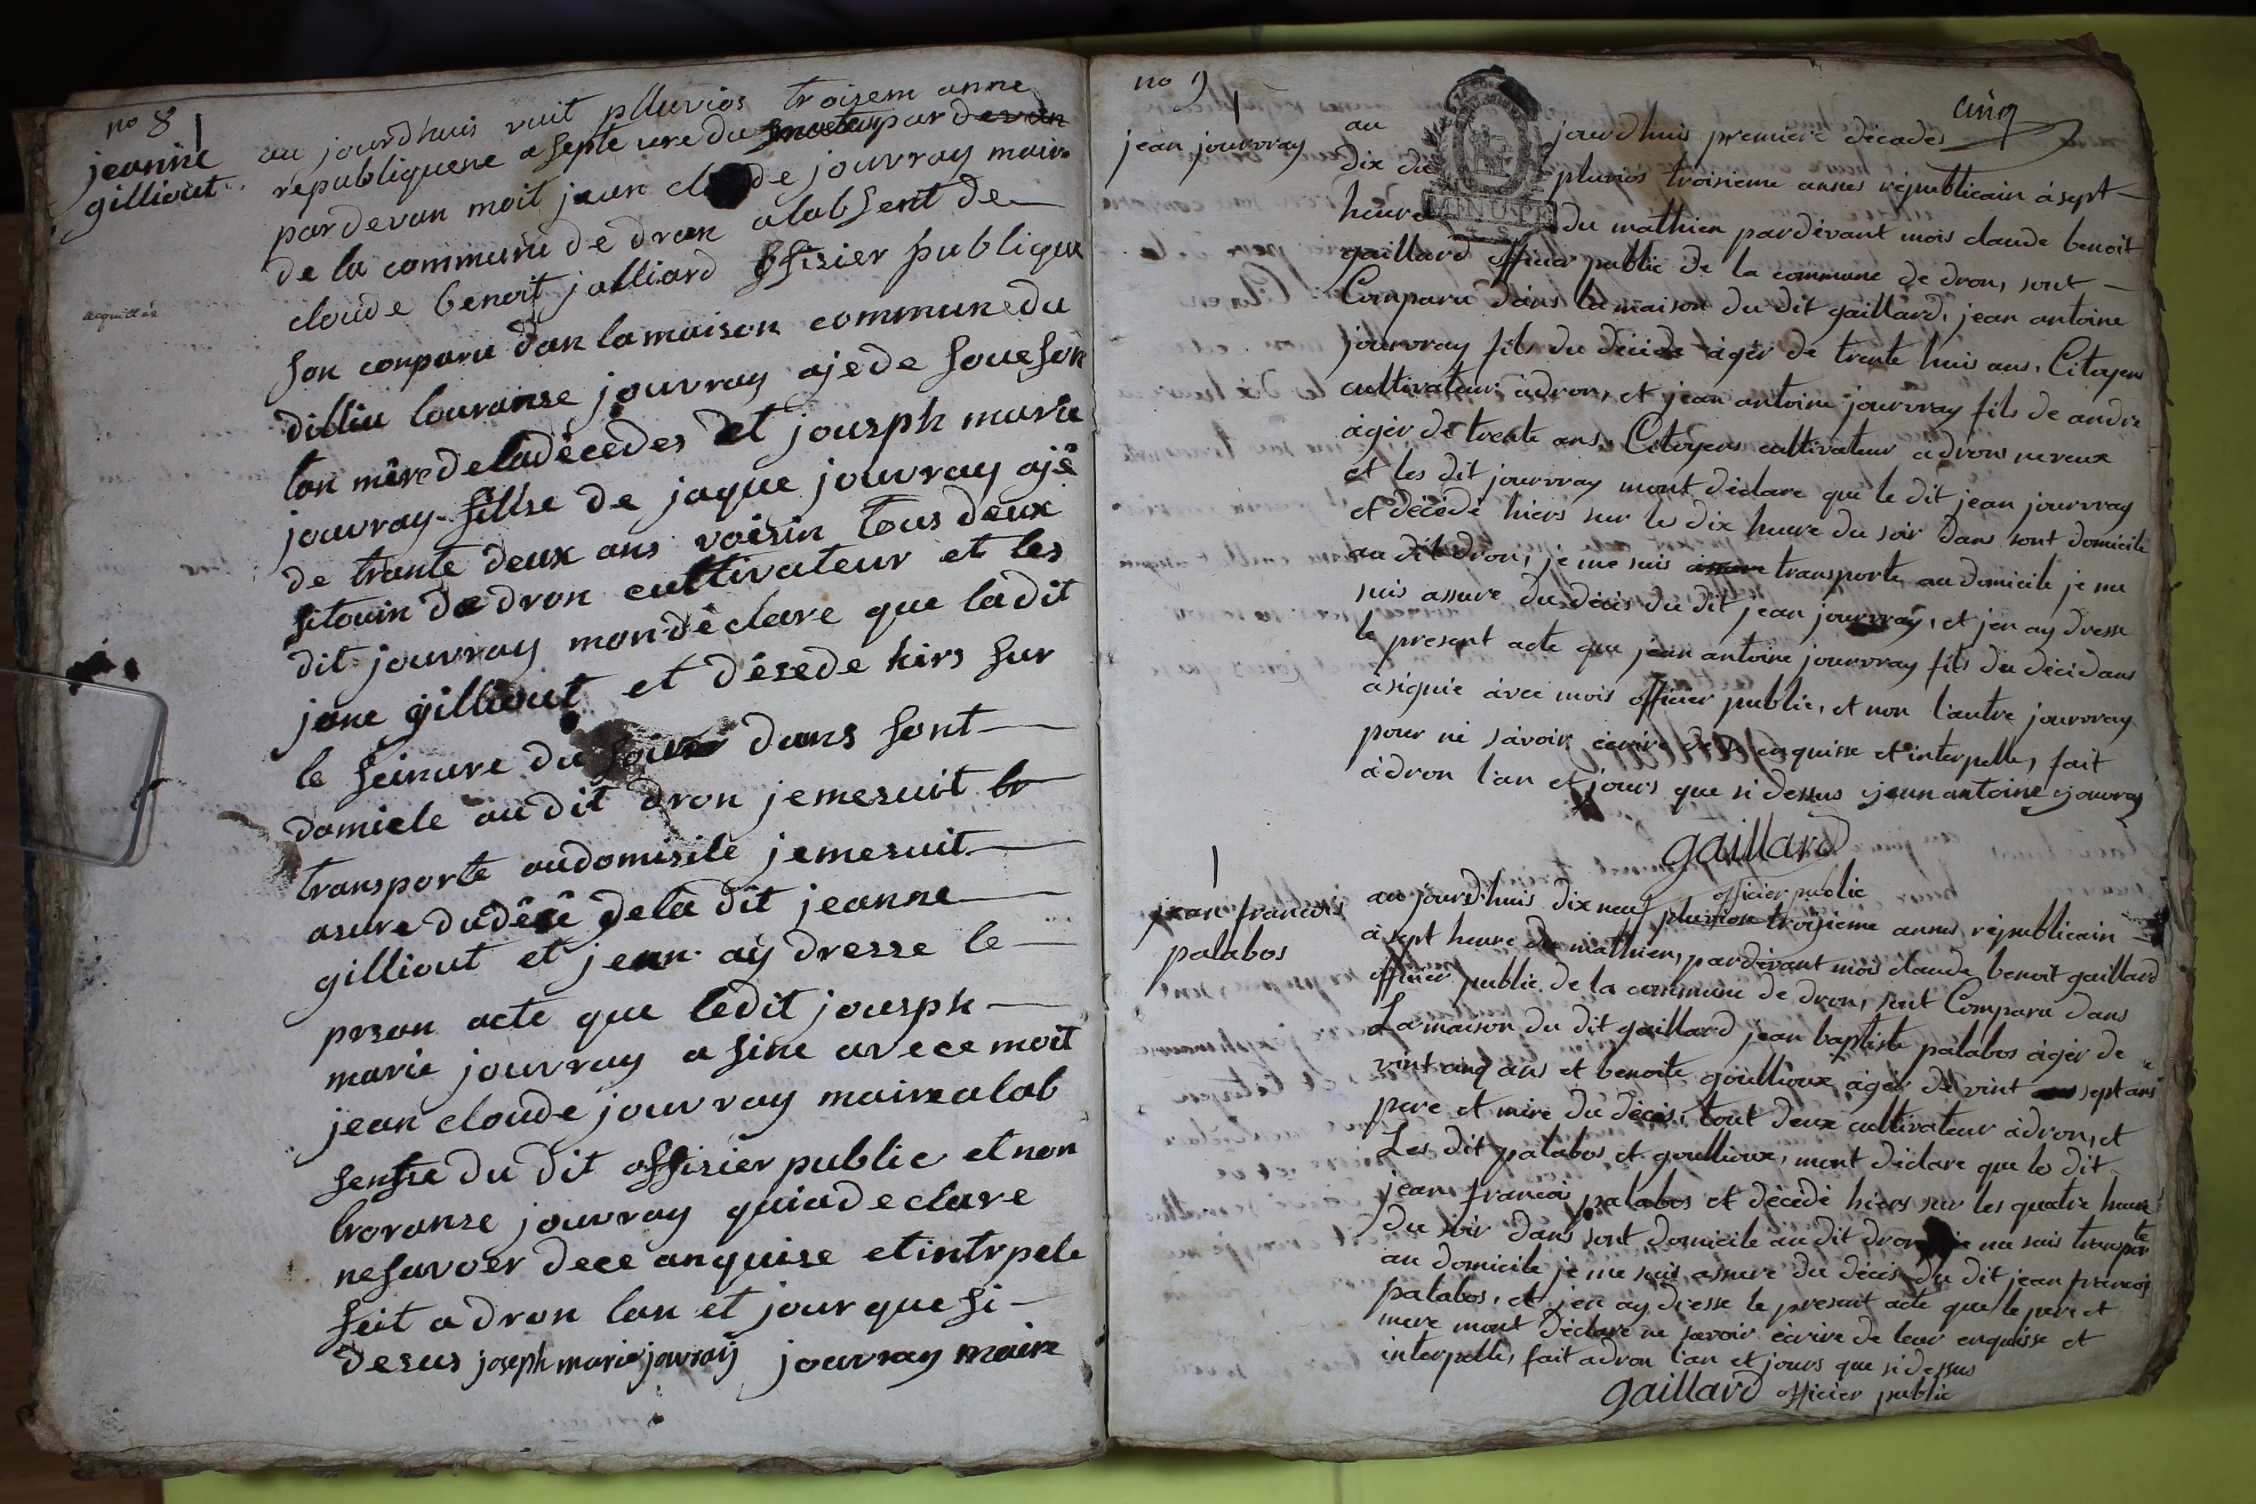 no 8
jeanine
gilliout
au jourdhuis vuit plluvios troizem anne
republiquene a septe ure du matin par devan
par devan moit jean claude jouvray maire
de la commune de dron alabsent de
cloude benoit jalliard offisier publique
son conparu dan lamaison commune du
dilliu louranse jouvray aje de soueson
tan mere deladecedes et jouseph marie
jouvray fillse de jaque jouvray aje
de trante deux ans voisin tous deux
sitouin de dron cultivateur et les
dit jouvray mon declare que ladit
jane gilliout et desede hirs sur
le seinure du soire dans sont
domicle audit dron jemesuit
transporte audomisile jemesuit
asure dudese dela dit jeanne
gilliout et jean ay dresse le
prsan acte que ledit jouseph
marie jouvray a sine avece moit
jean cloude jouvray maire alab
sense du dit offisier public et non
loranse jouvray quia declare
nesavoer dece anquise et intrpele
feit a dron lan et jour que si
desus joseph marie jouvray jouvray maire
no 9
cinq
jean jourvray
au jourdhuis premiere décades
dix du pluvios troisieme annes républicain à sept
heure du mathien pardévant mois claude benoit
MINUTE
gaillard officier public de la commune de dron, sont
Comparu dans la maison du dit gaillard, jean antoine
jourvray fils du décide àgér de trente huis ans, Citoyens
cultivateur àdron, et jean antoine jourvray fils de andre
àgér de trente ans, Citoyens cultivateur adron neveux
et les dit jourvray mont déclare que le dit jean jourvray
et décédé hiers sur le dix heure du soir dans sont domicile
au dit dron, je me suis transporte au domicile je me
suis assure du décés du dit jean jourvray, et jen ay dresse
le present acte que jean antoine jourvray fils du décidans
àsignie àvec mois officier public, et non l'autre jourvray
pour ne sàvoir écrire de enquisse et interpelle, fait
àdron l'an et jours que si dessus jean antoine jouvray
gaillard
officier public
jean francois
palabos
au jourd'huis dix neuf pluviose troisieme annes républicain
à sept heure du mathien, pardévant mois claude benoit gaillard
officier public de la commune de dron, sont Comparu dans
La maison du dit gaillard jean baptiste palabos àgér de
vint cinq ans et benoite goullioux àgér de vint sept ans
pere et mere du décés, tout deux cultivateur àdron, et
Les dit palabos et goullioux, mont déclare que le dit
jean francois palabos et décédé hiers sur les quatre heure
du soir dans sont domicile au dit dron, je me suis transporte
au domicile je me suis assure du décés du dit jean francois
palabos, et j'en ay dresse le present acte que le pere et
mere mont déclare ne savoir écrire de leur enquisse et
interpelle, fait adron l'an et jours que si dessus
gaillard officier public